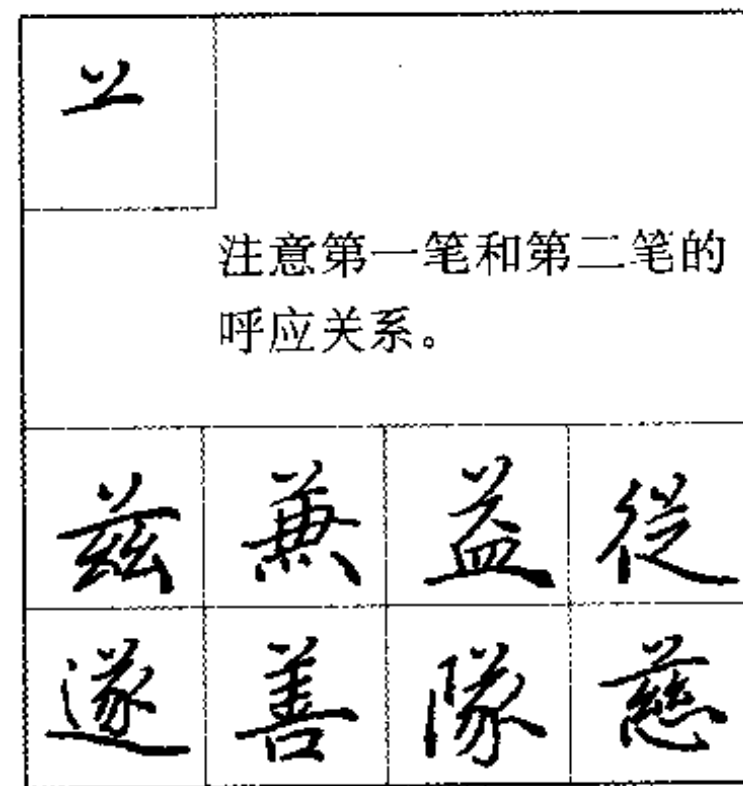 䒑
注意第一笔和第二笔的
呼应关系。
兹 兼 益 從
遂 善 隊 慈